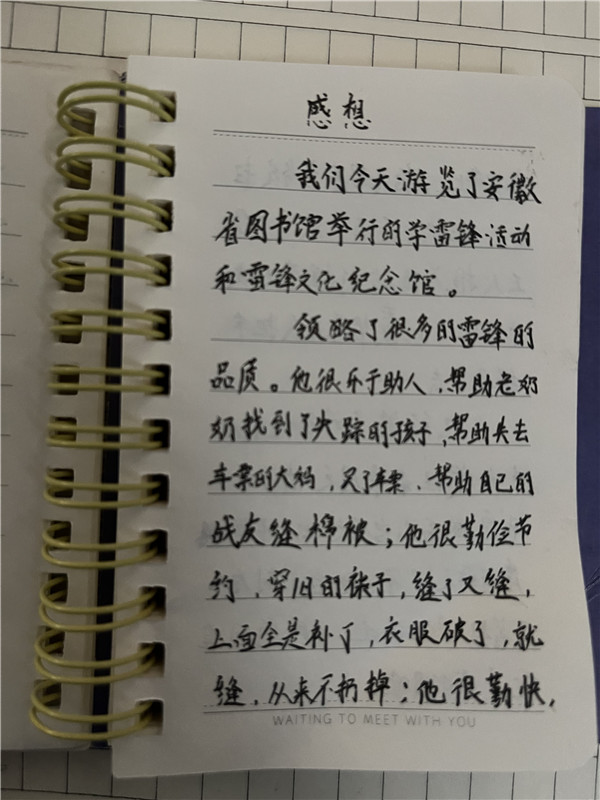 感想
我们今天游览了安徽
省图书馆举行的学雷锋活动
和雷锋文化纪念馆。
领略了很多的雷锋的
品质。他很乐于助人,帮助老奶
奶找到了失踪的孩子,帮助失去
车票的大妈,买了车票,帮助自己的
战友缝棉被;他很勤俭节
约,穿旧的袜子,缝了又缝,
上面全是补丁,衣服破了,就
缝,从来不扔掉;他很勤快,
WAITING TO MEET WITH YOU